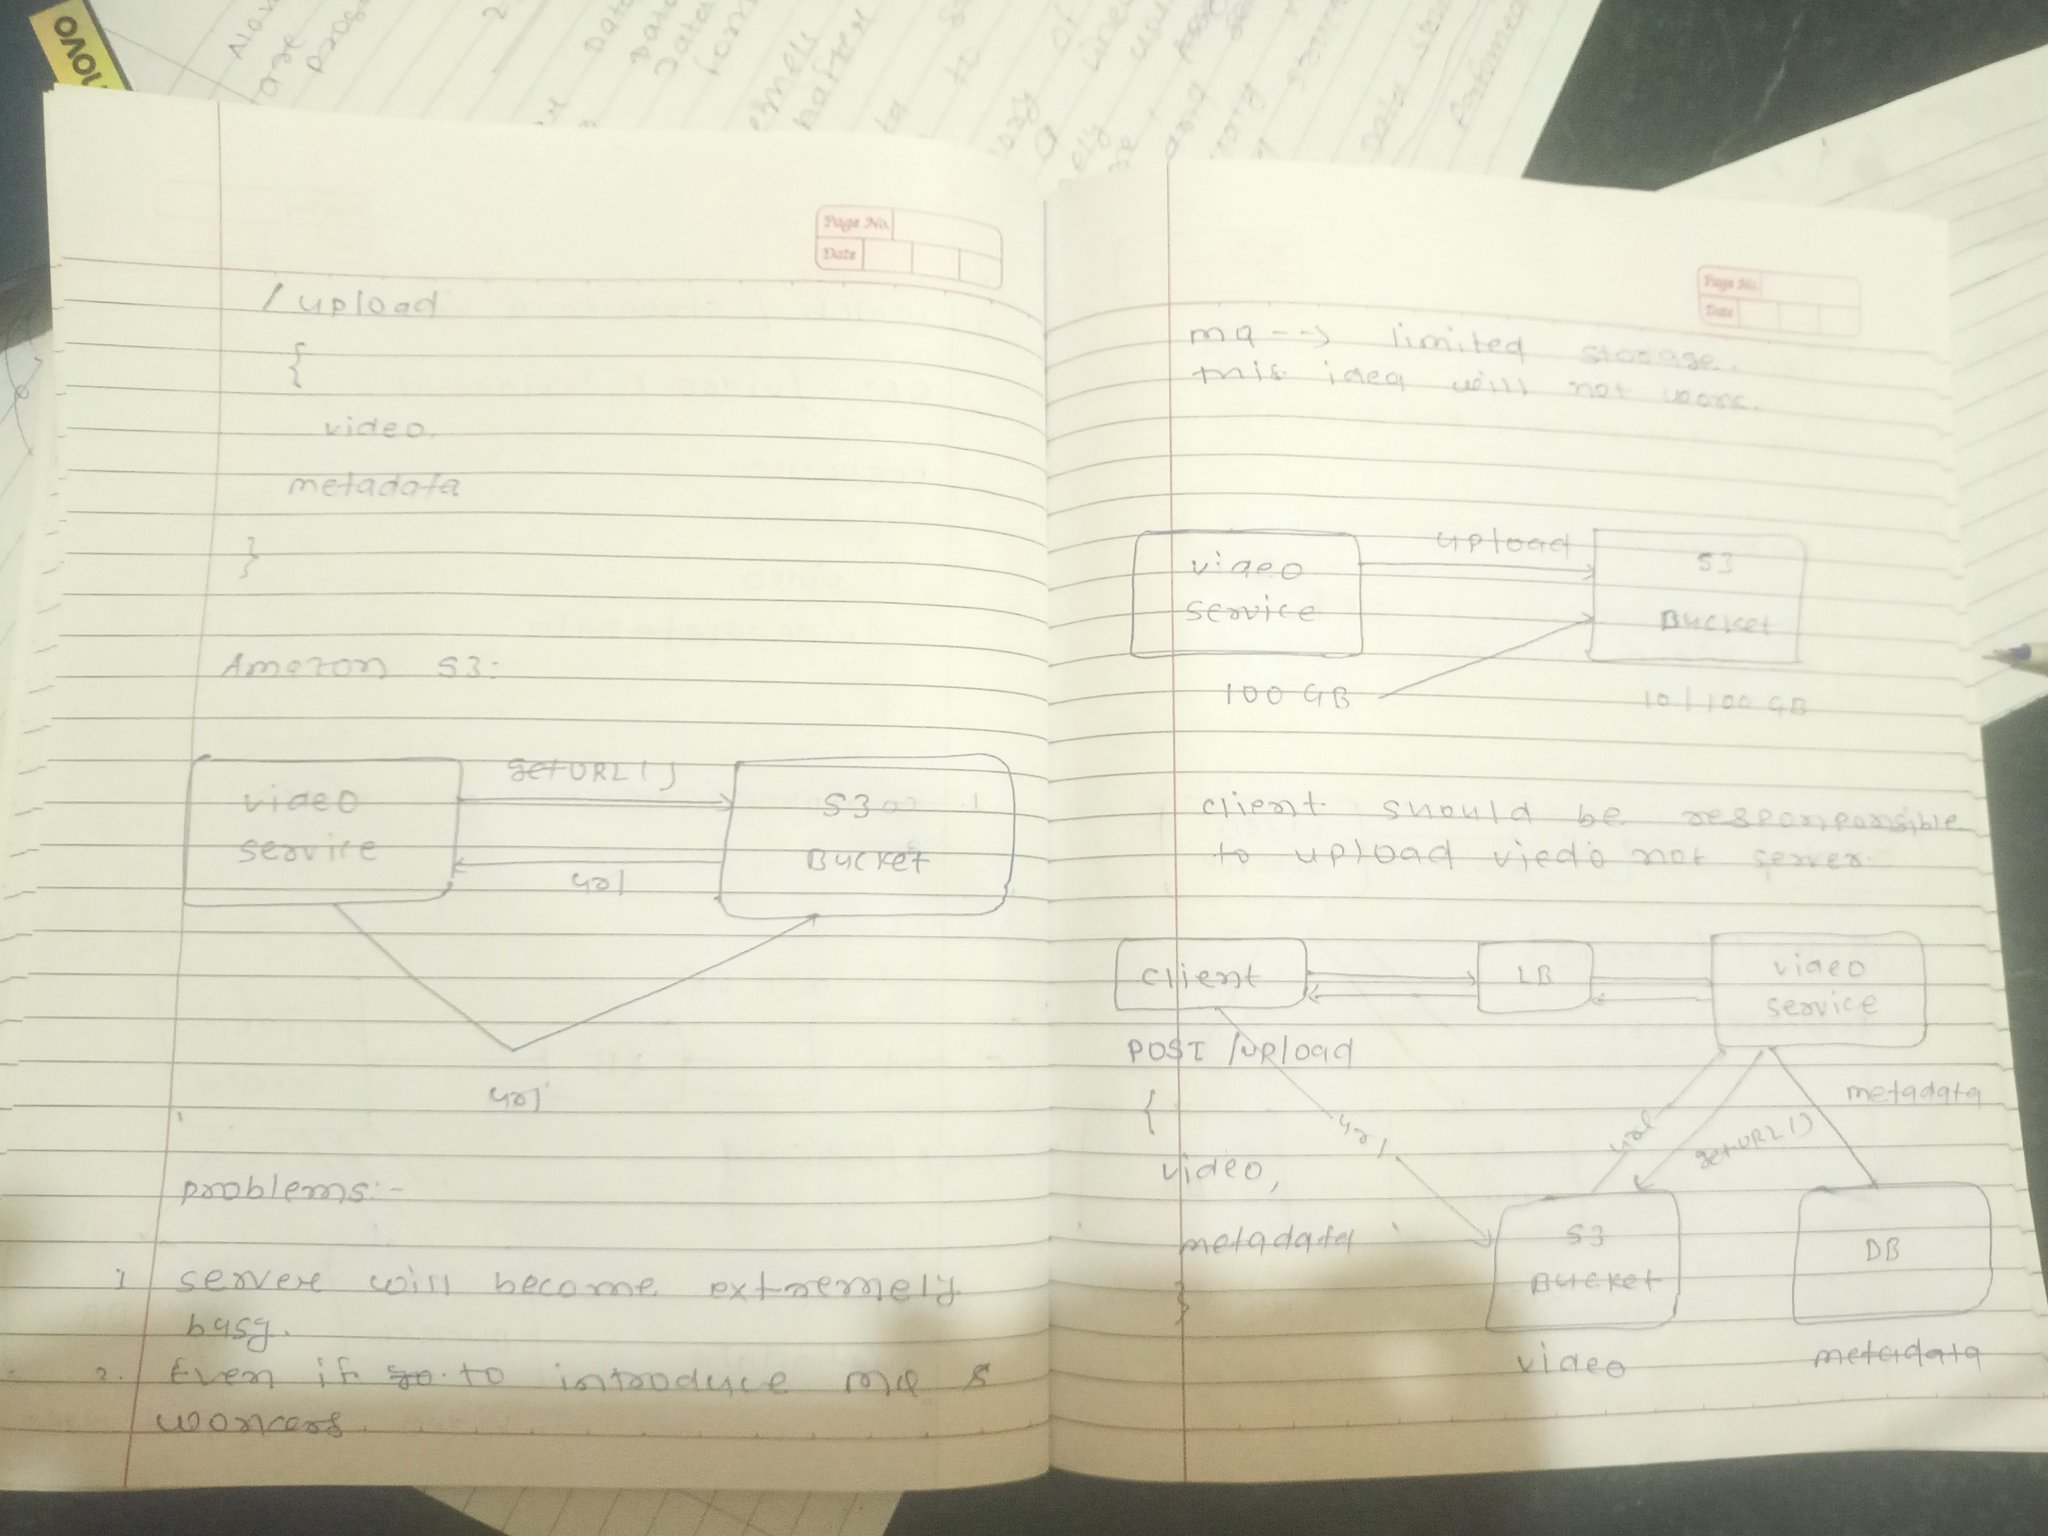 novo
Page No.
Date
/upload
{
video.
metadata
}
Amazon S3:
getURL()
video
service
S3
Bucket
url
url
problems:-
1 server will become extremely
busy.
2. Even if go to introduce mq &
workers
Page No.
Date
mq --> limited storage.
this idea will not work.
upload
video
service
S3
Bucket
100 GB
10/100 GB
client should be responponsible
to upload viedo not server
client
LB
video
service
POST /upload
{
video,
metadata
}
url
url
getURL()
metadata
S3
Bucket
DB
video
metadata